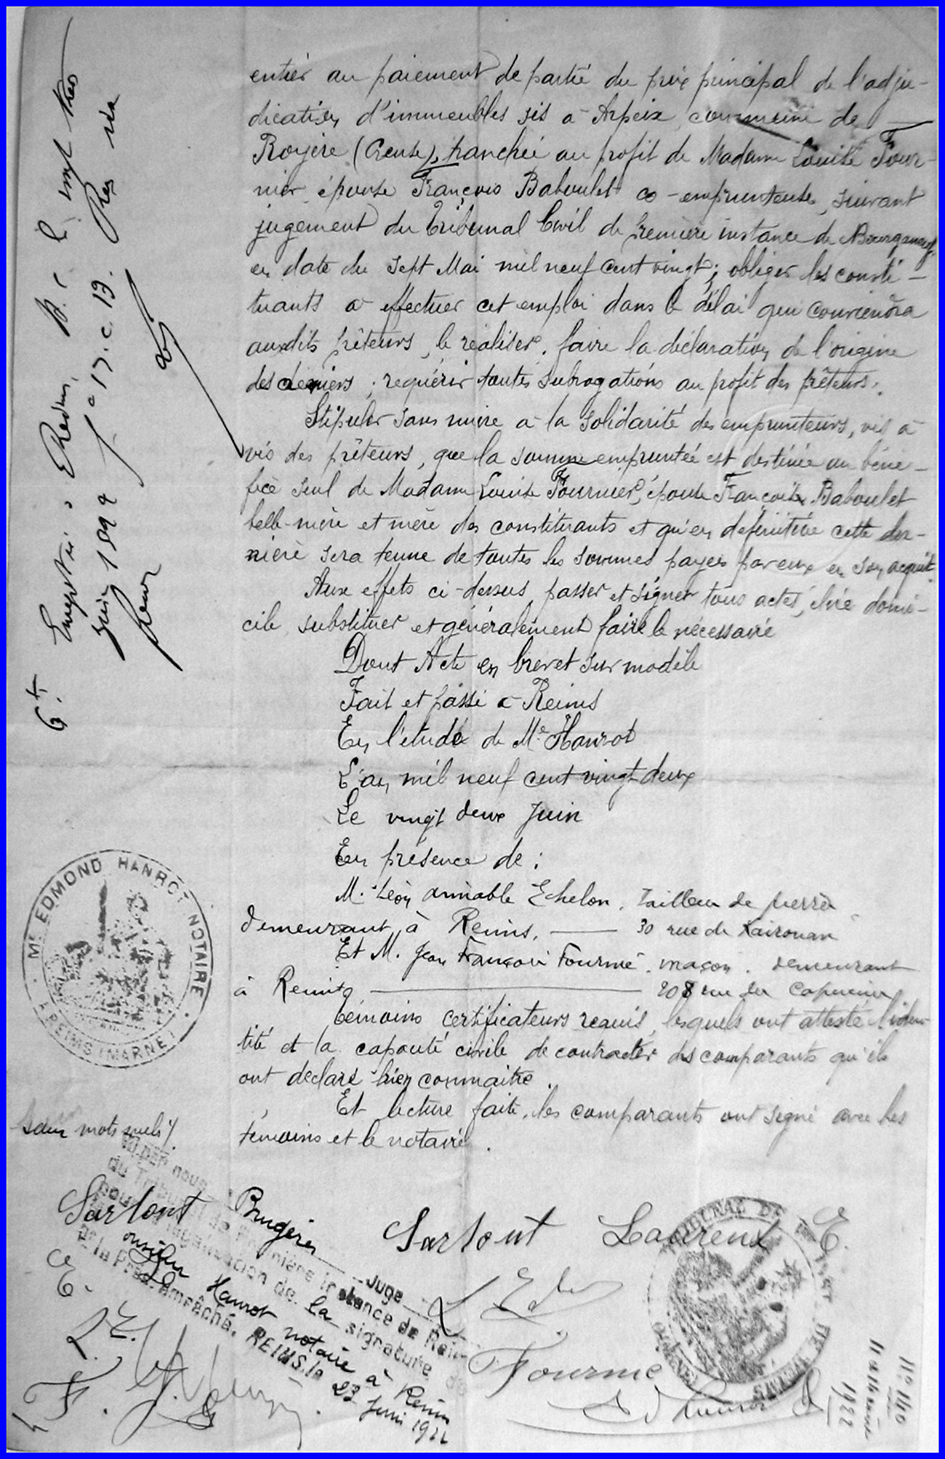 entier au paiement de partie du prix principal de l'adju-
dication d'immeubles sis à Arpeix, commune de
Royère (Creuse), tranchée au profit de Madame Louise Four-
nier, épouse François Baboulet co-emprunteuse, suivant
jugement du Tribunal Civil de Première instance de Bourganeuf
en date du sept Mai mil neuf cent vingt ; obliger les consti-
tuants à effectuer cet emploi dans le délai qui conviendra
auxdits prêteurs, le réaliser, faire la déclaration de l'origine
des deniers ; requérir toutes subrogations au profit des prêteurs.
Stipuler sans nuire à la solidarité des emprunteurs, vis à
vis des prêteurs, que la somme empruntée est destinée au béné-
fice seul de Madame Louise Fournier, épouse François Baboulet
belle-mère et mère des constituants et qu'en définitive cette der-
nière sera tenue de toutes les sommes payes par eux en son acquit.
Aux effets ci-dessus, passer et signer tous actes, élire domi-
cile, substituer et généralement faire le nécessaire
Dont Acte en brevet sur modèle
Fait et passé à Reims
En l'étude de Me Hanrot
L'an mil neuf cent vingt deux
Le vingt deux Juin
En présence de :
M. Léon Aimable Echelon, tailleur de pierre
demeurant à Reims, 30 rue de Kairouan
Et M. Jean François Fourme, maçon, demeurant
à Reims 208 rue du
Témoins certificateurs requis, lesquels ont attesté l'iden-
tité et la capacité civile de contracter des comparants qu'ils
ont déclaré bien connaître.
Et lecture faite, les comparants ont signé avec les
témoins et le notaire.
Me EDMOND HANROT NOTAIRE
REIMS (MARNE)
Sartout
Brugère
Juge
du Tribunal de Première Instance de Reims
légalisation de la signature de
Me Hanrot notaire à Reims
REIMS, le 23 Juin 1922
Sartout Laureux E.
Fourme
TRIBUNAL DE
1922